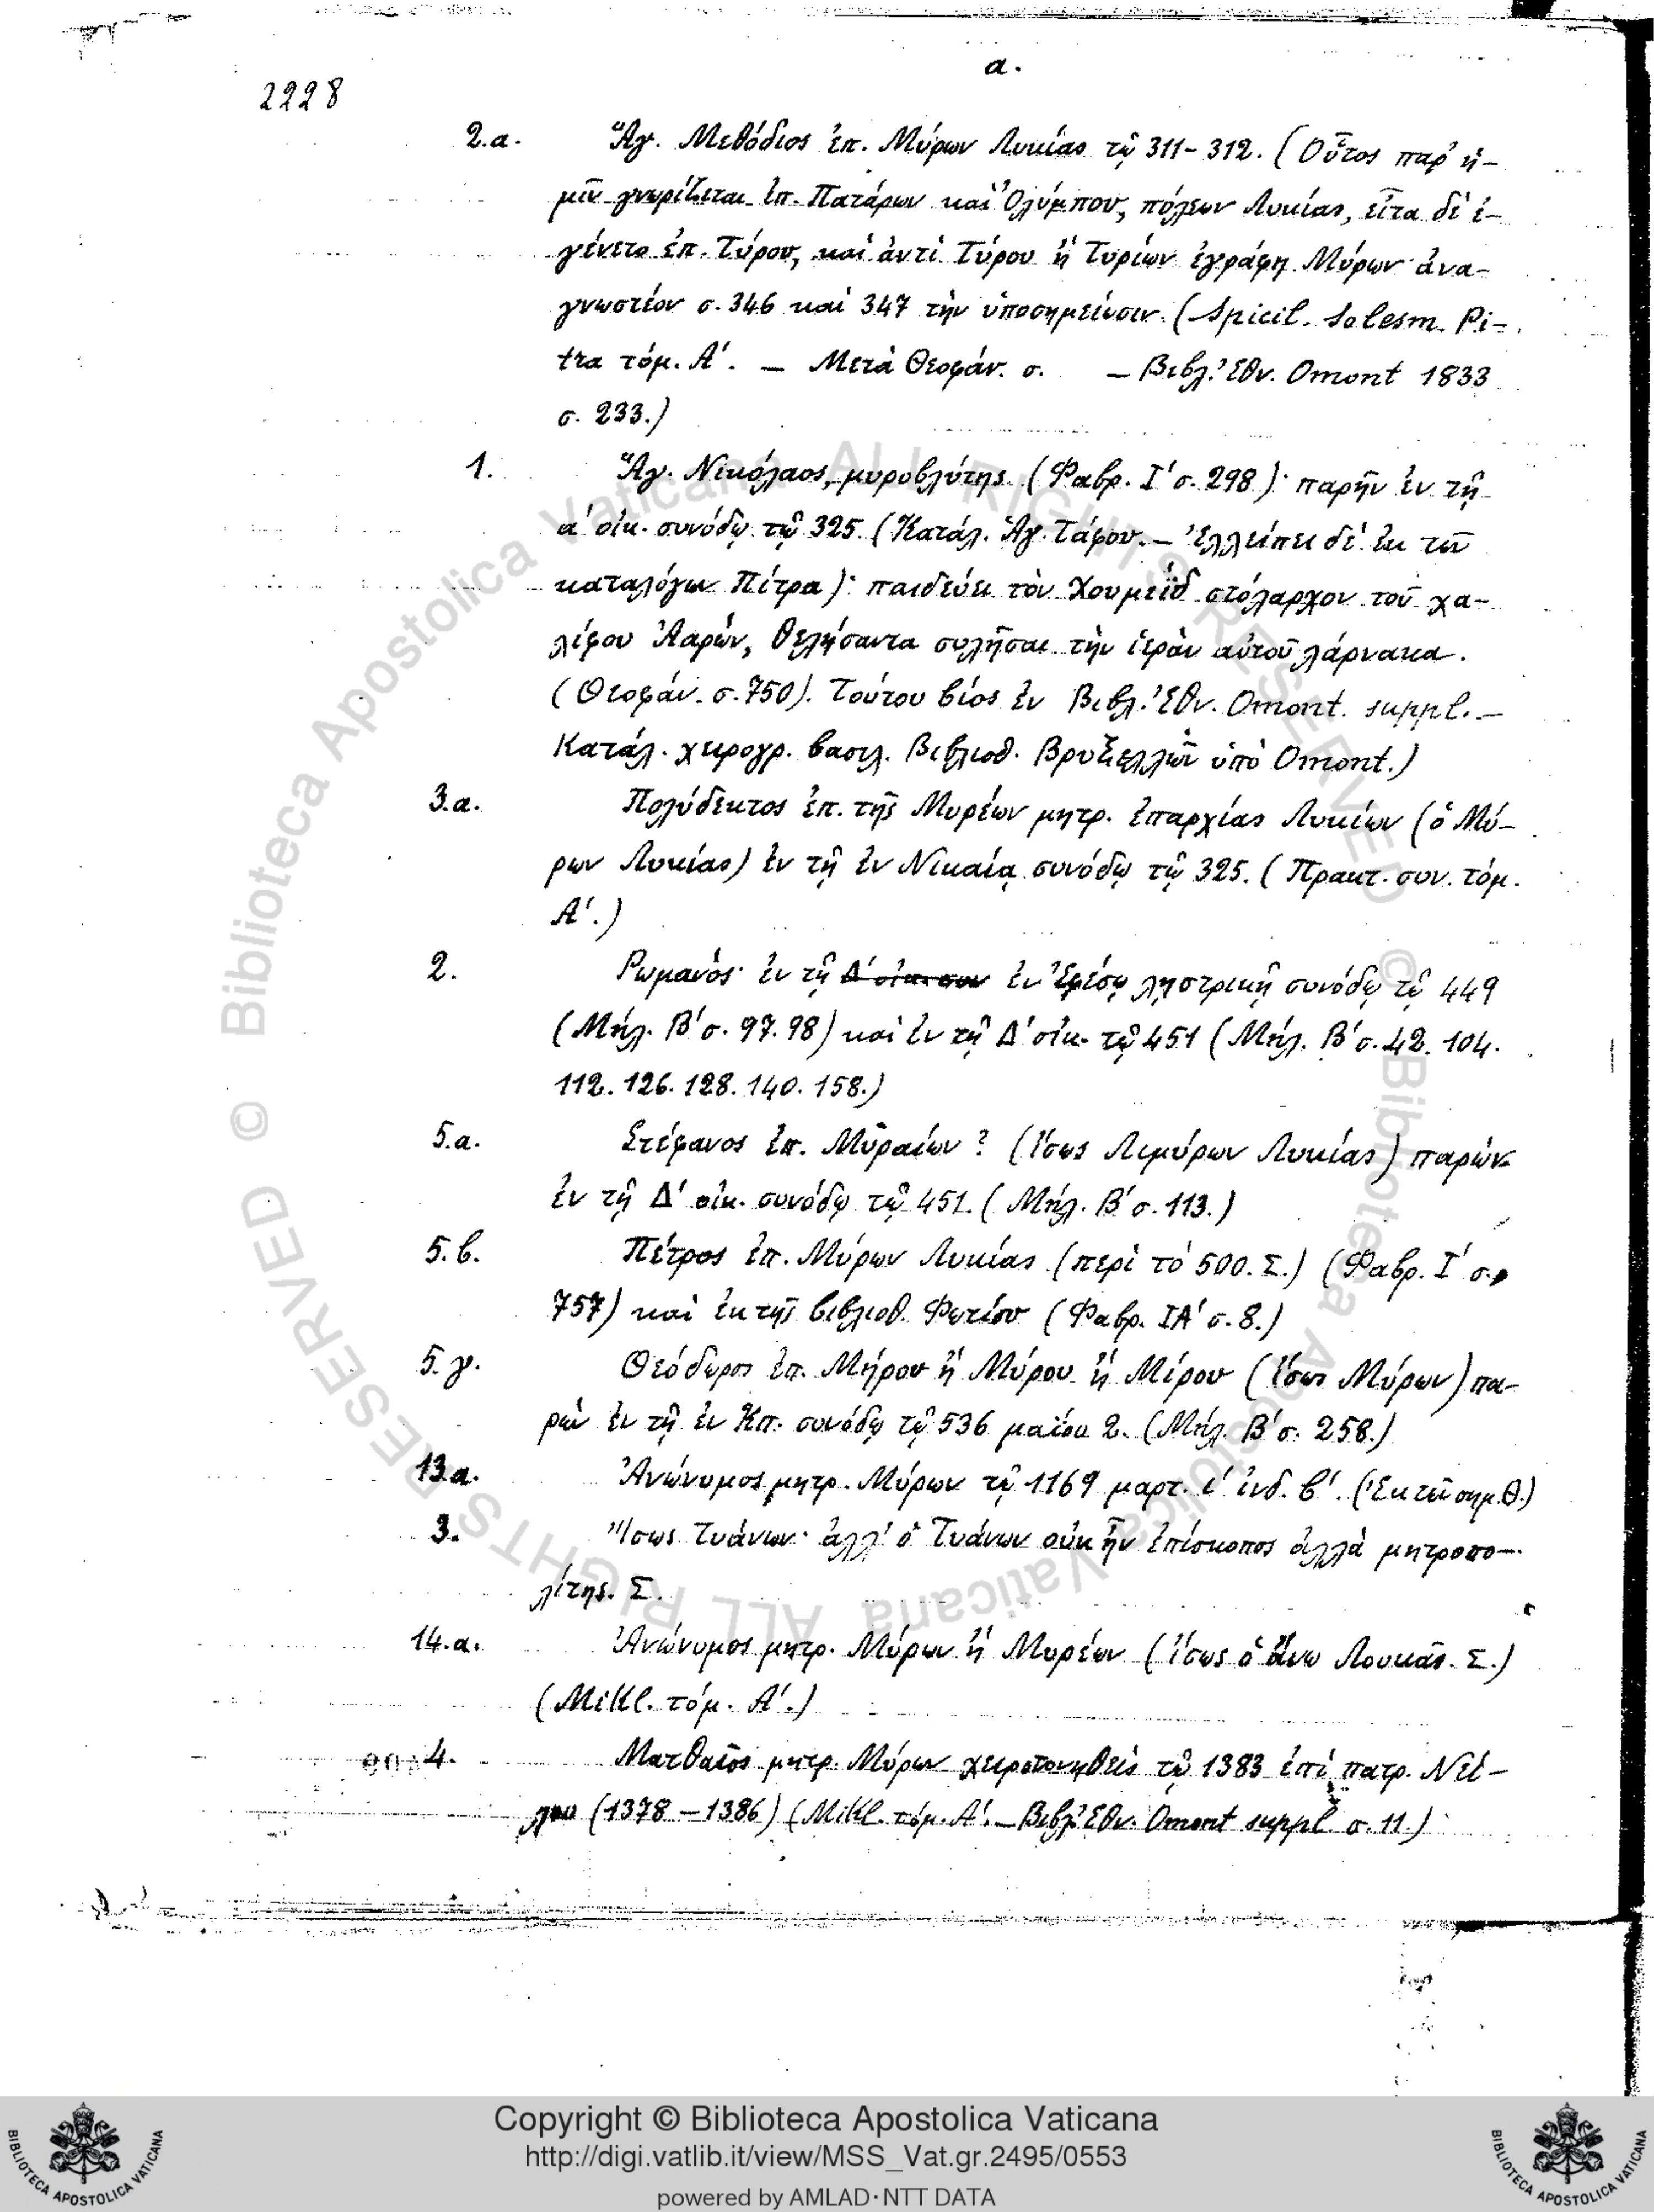 α.
2228
2.α. Ἅγ. Μεθόδιος ἐπ. Μύρων Λυκίας τῷ 311-312. (Οὗτος παρ' ἡ-
μῖν γνωρίζεται ἐπ. Πατάρων καὶ Ὀλύμπου, πόλεων Λυκίας, εἶτα δὲ ἐ-
γένετο ἐπ. Τύρου, καὶ ἀντὶ Τύρου ἢ Τυρίων ἐγράφη Μύρων· ἀνα-
γνωστέον σ. 346 καὶ 347 τὴν ὑποσημείωσιν. (Spicil. Solesm. Pi-
tra τόμ. Α'. — Μετὰ Θεοφάν. σ. — Βιβλ. Ἐθν. Omont 1833
σ. 233.)
1. Ἅγ. Νικόλαος, μυροβλύτης (Φαβρ. Ι' σ. 298)· παρῆν ἐν τῇ
α' οἰκ. συνόδῳ τῷ 325. (Κατάλ. Ἁγ. Τάφου. — Ἐλλείπει δὲ ἐκ τῶν
καταλόγων Πίτρα)· παιδεύει τὸν Χουμεῒδ στόλαρχον τοῦ χα-
λίφου Ἀαρών, θελήσαντα συλῆσαι τὴν ἱερὰν αὐτοῦ λάρνακα.
(Θεοφάν. σ. 750). Τούτου βίος ἐν Βιβλ. Ἐθν. Omont. suppl. —
Κατάλ. χειρογρ. βασιλ. βιβλιοθ. Βρυξελλῶν ὑπὸ Omont.)
3.α. Πολύδευτος ἐπ. τῆς Μυρέων μητρ. ἐπαρχίας Λυκίων (ὁ Μύ-
ρων Λυκίας) ἐν τῇ ἐν Νικαίᾳ συνόδῳ τῷ 325. (Πρακτ. συν. τόμ.
Α'.)
2. Ῥωμανός· ἐν τῇ Δ' οἰκ. συν ἐν Ἐφέσῳ λῃστρικῇ συνόδῳ τῷ 449
(Μήλ. Β' σ. 97. 98) καὶ ἐν τῇ Δ' οἰκ. τῷ 451 (Μήλ. Β' σ. 42. 104.
112. 126. 128. 140. 158.)
5.α. Στέφανος ἐπ. Μυραίων? (ἴσως Λιμύρων Λυκίας) παρὼν
ἐν τῇ Δ' οἰκ. συνόδῳ τῷ 451. (Μήλ. Β' σ. 113.)
5.β. Πέτρος ἐπ. Μύρων Λυκίας (περὶ τὸ 500. Σ.) (Φαβρ. Ι' σ.
757) καὶ ἐκ τῆς βιβλιοθ. Φωτίου (Φαβρ. ΙΑ' σ. 8.)
5.γ. Θεόδωρος ἐπ. Μήρου ἢ Μύρου ἢ Μίρου (ἴσως Μύρων) πα-
ρὼν ἐν τῇ ἐν Κπ. συνόδῳ τῷ 536 μαΐου 2. (Μήλ. Β' σ. 258.)
13.α. Ἀνώνυμος μητρ. Μύρων τῷ 1169 μαρτ. ι' ἰνδ. β'. (Ἐκ τῶν σημ. Θ.)
3. Ἴσως Τυάνων· ἀλλ' ὁ Τυάνων οὐκ ἦν ἐπίσκοπος ἀλλὰ μητροπο-
λίτης. Σ.
14.α. Ἀνώνυμος μητρ. Μύρων ἢ Μυρέων (ἴσως ὁ ἄνω Λουκᾶς. Σ.)
(Mikl. τόμ. Α'.)
4. Ματθαῖος μητρ. Μύρων χειροτονηθεὶς τῷ 1383 ἐπὶ πατρ. Νεί-
λου (1378—1386) (Mikl. τόμ. Α'. — Βιβλ. Ἐθν. Omont suppl. σ. 11.)
© Biblioteca Apostolica Vaticana ALL RIGHTS RESERVED © Biblioteca Apostolica Vaticana ALL RIGHTS RESERVED
Copyright © Biblioteca Apostolica Vaticana
http://digi.vatlib.it/view/MSS_Vat.gr.2495/0553
powered by AMLAD·NTT DATA
BIBLIOTECA APOSTOLICA VATICANA
BIBLIOTECA APOSTOLICA VATICANA